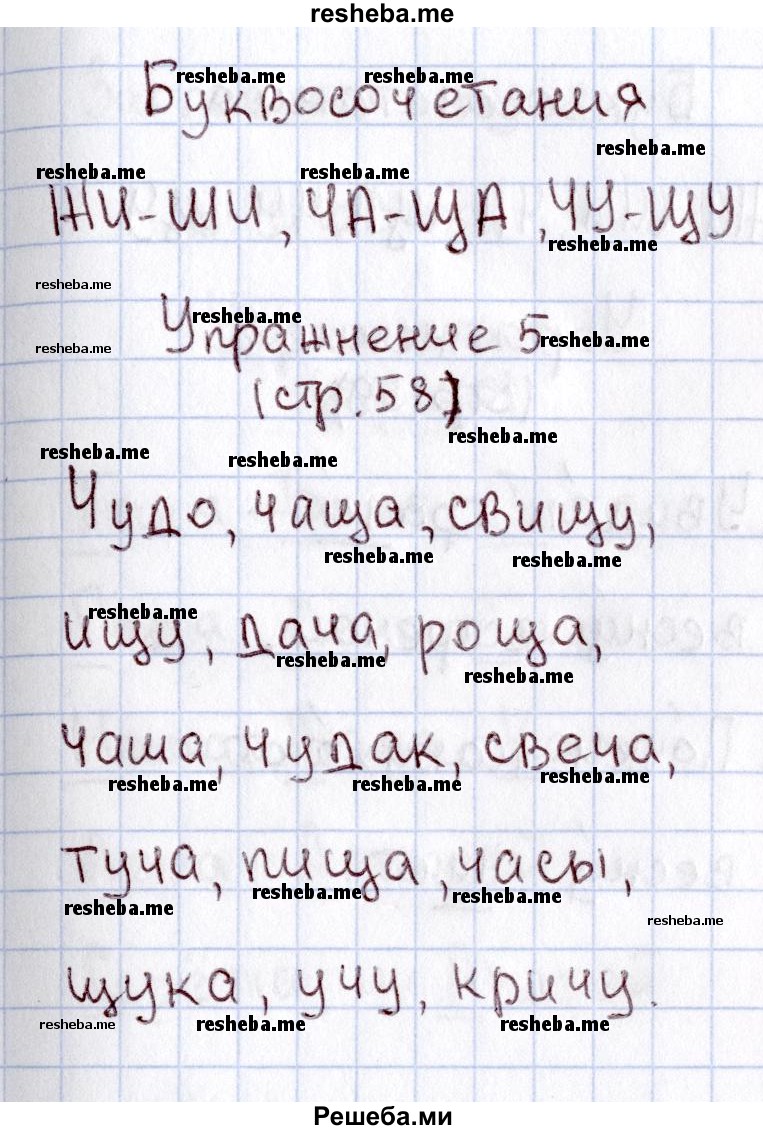 resheba.me
resheba.me resheba.me
Буквосочетания
resheba.me
resheba.me resheba.me
ЖИ-ШИ, ЧА-ЩА, ЧУ-ЩУ
resheba.me
resheba.me
resheba.me
Упражнение 5
resheba.me resheba.me
(стр. 58)
resheba.me
resheba.me resheba.me
Чудо, чаща, свищу,
resheba.me resheba.me
resheba.me
ищу, дача, роща,
resheba.me
resheba.me
чаша, чудак, свеча,
resheba.me resheba.me resheba.me
туча, пища, часы,
resheba.me resheba.me resheba.me
resheba.me
щука, учу, кричу.
resheba.me resheba.me resheba.me
Решеба.ми